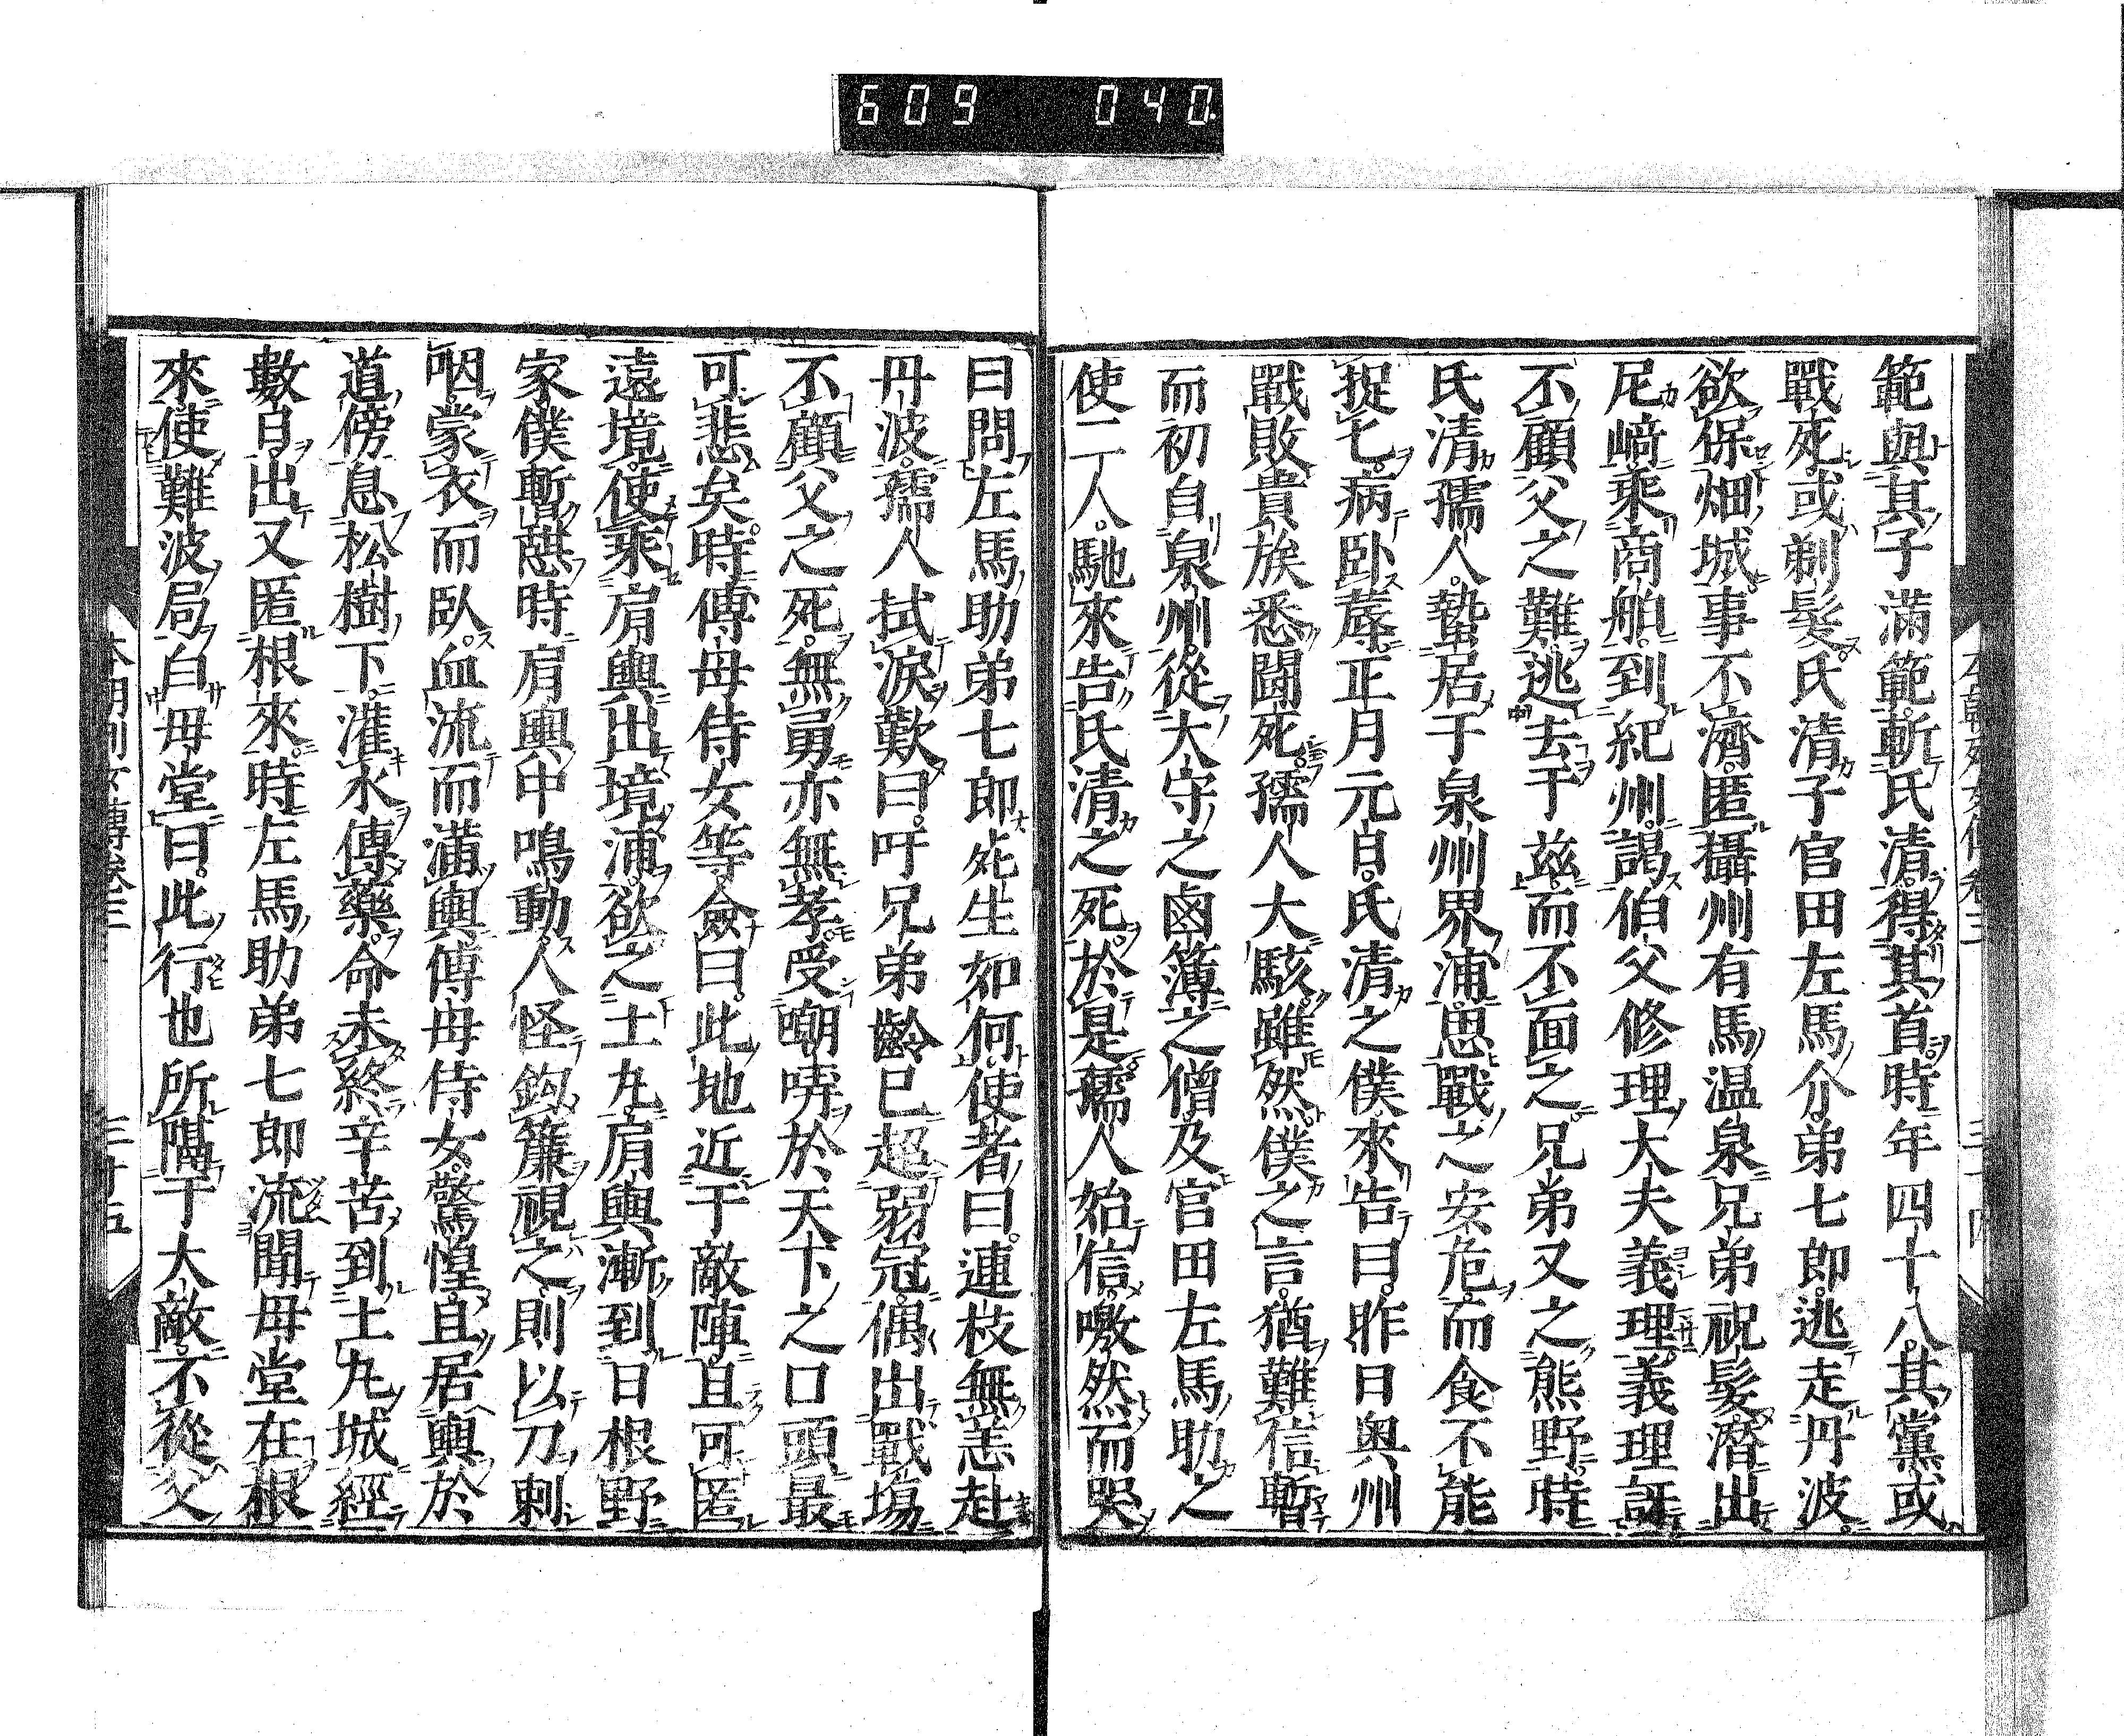 609 040
範與其子滿範斬氏清得其首時年四十八其黨或
戰死或剃髮氏清子官田左馬介弟七郎逃走丹波
欲保畑城事不濟匿攝州有馬温泉兄弟祝髮潛出
尼﨑乘商舶到紀州謁伯父修理大夫義理義理訝
不顧父之難逃去于茲而不面之兄弟又之熊野時
氏清孺人蟄居于泉州界浦思戰之安危而食不能
捉匕病卧蓐正月元日氏清之僕來告曰昨日奥州
戰敗貴族悉鬪死孺人大駭雖然僕之言猶難信暫
而初自泉州從大守之鹵簿之僧及官田左馬助之
使二人馳來告氏清之死於是孺人始信噭然而哭
曰問左馬助弟七郎死生如何使者曰連枝無恙赴
丹波孺人拭淚歎曰吁兄弟齡已超弱冠偶出戰場
不顧父之死無勇亦無孝受嘲哢於天下之口頭最
可悲矣時傅母侍女等僉曰此地近于敵陣且可匿
遠境使乘肩輿出境浦欲之土丸肩輿漸到日根野
家僕暫憇時肩輿中鳴動人怪鉤簾視之則以刀刺
咽蒙衣而臥血流而滿輿傅母侍女驚惶且居輿於
道傍息松樹下灌水傅藥命未終辛苦到土丸城經
數日出又匿根來時左馬助弟七郎流聞母堂在根
來使難波局白母堂曰此行也所隅于大敵不從父
本朝列女傳卷三
三十五